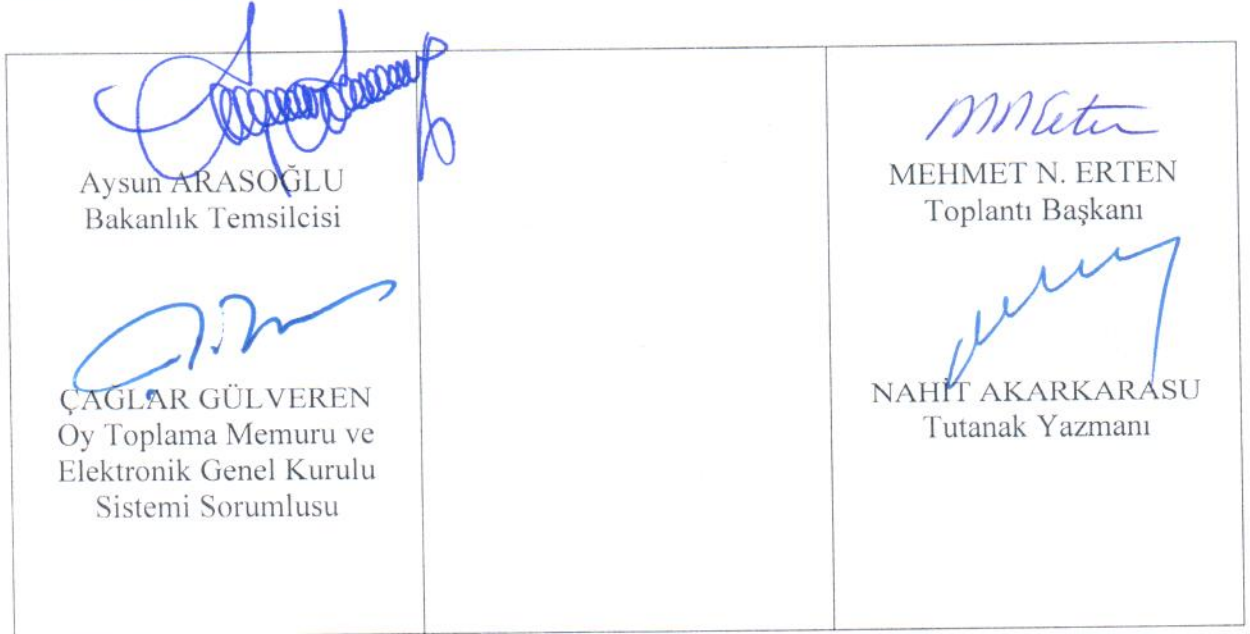 Aysun ARASOĞLU
Bakanlık Temsilcisi
ÇAĞLAR GÜLVEREN
Oy Toplama Memuru ve
Elektronik Genel Kurulu
Sistemi Sorumlusu
MEHMET N. ERTEN
Toplantı Başkanı
NAHİT AKARKARASU
Tutanak Yazmanı